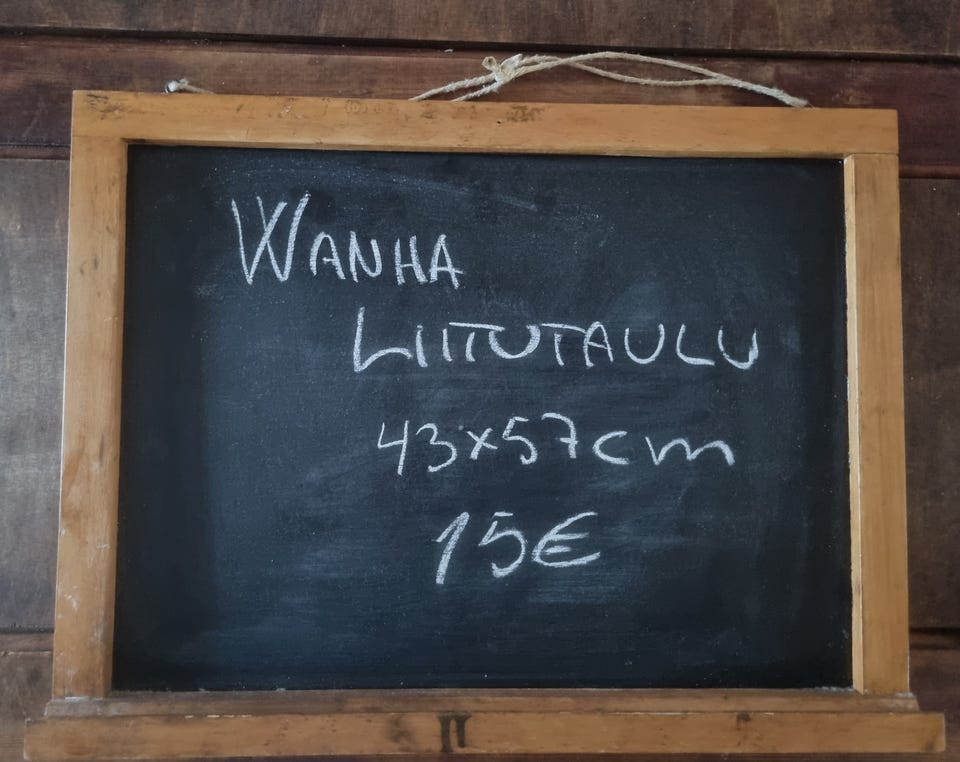 WANHA
LIITUTAULU
43x57cm
15€